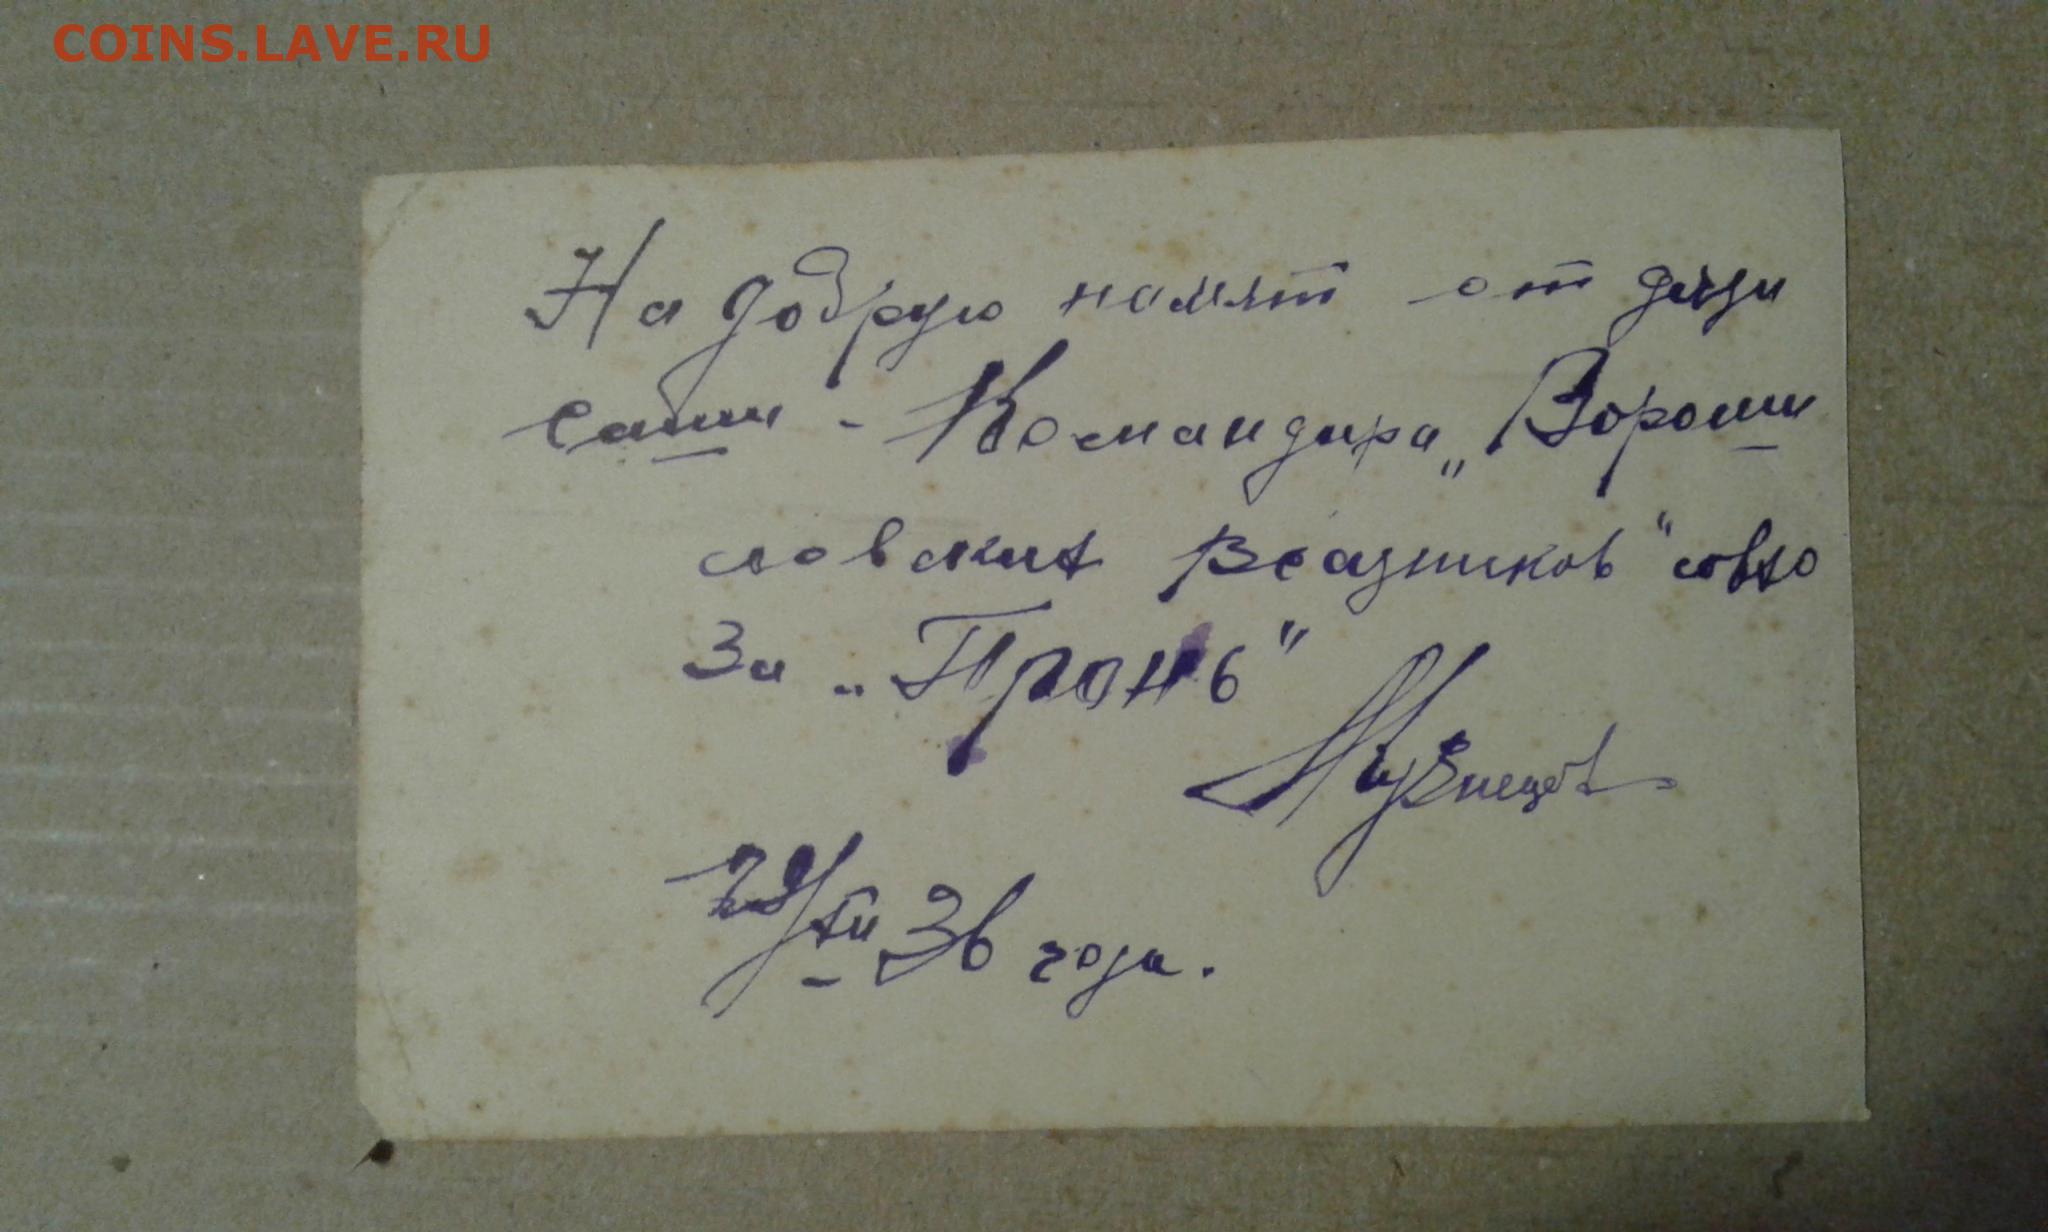 COINS.LAVE.RU
На добрую памят от дяди
Саши - Командира „Вороши
ловских Всадников" совхо
за „Пронь"
Кузнецов
36 года.